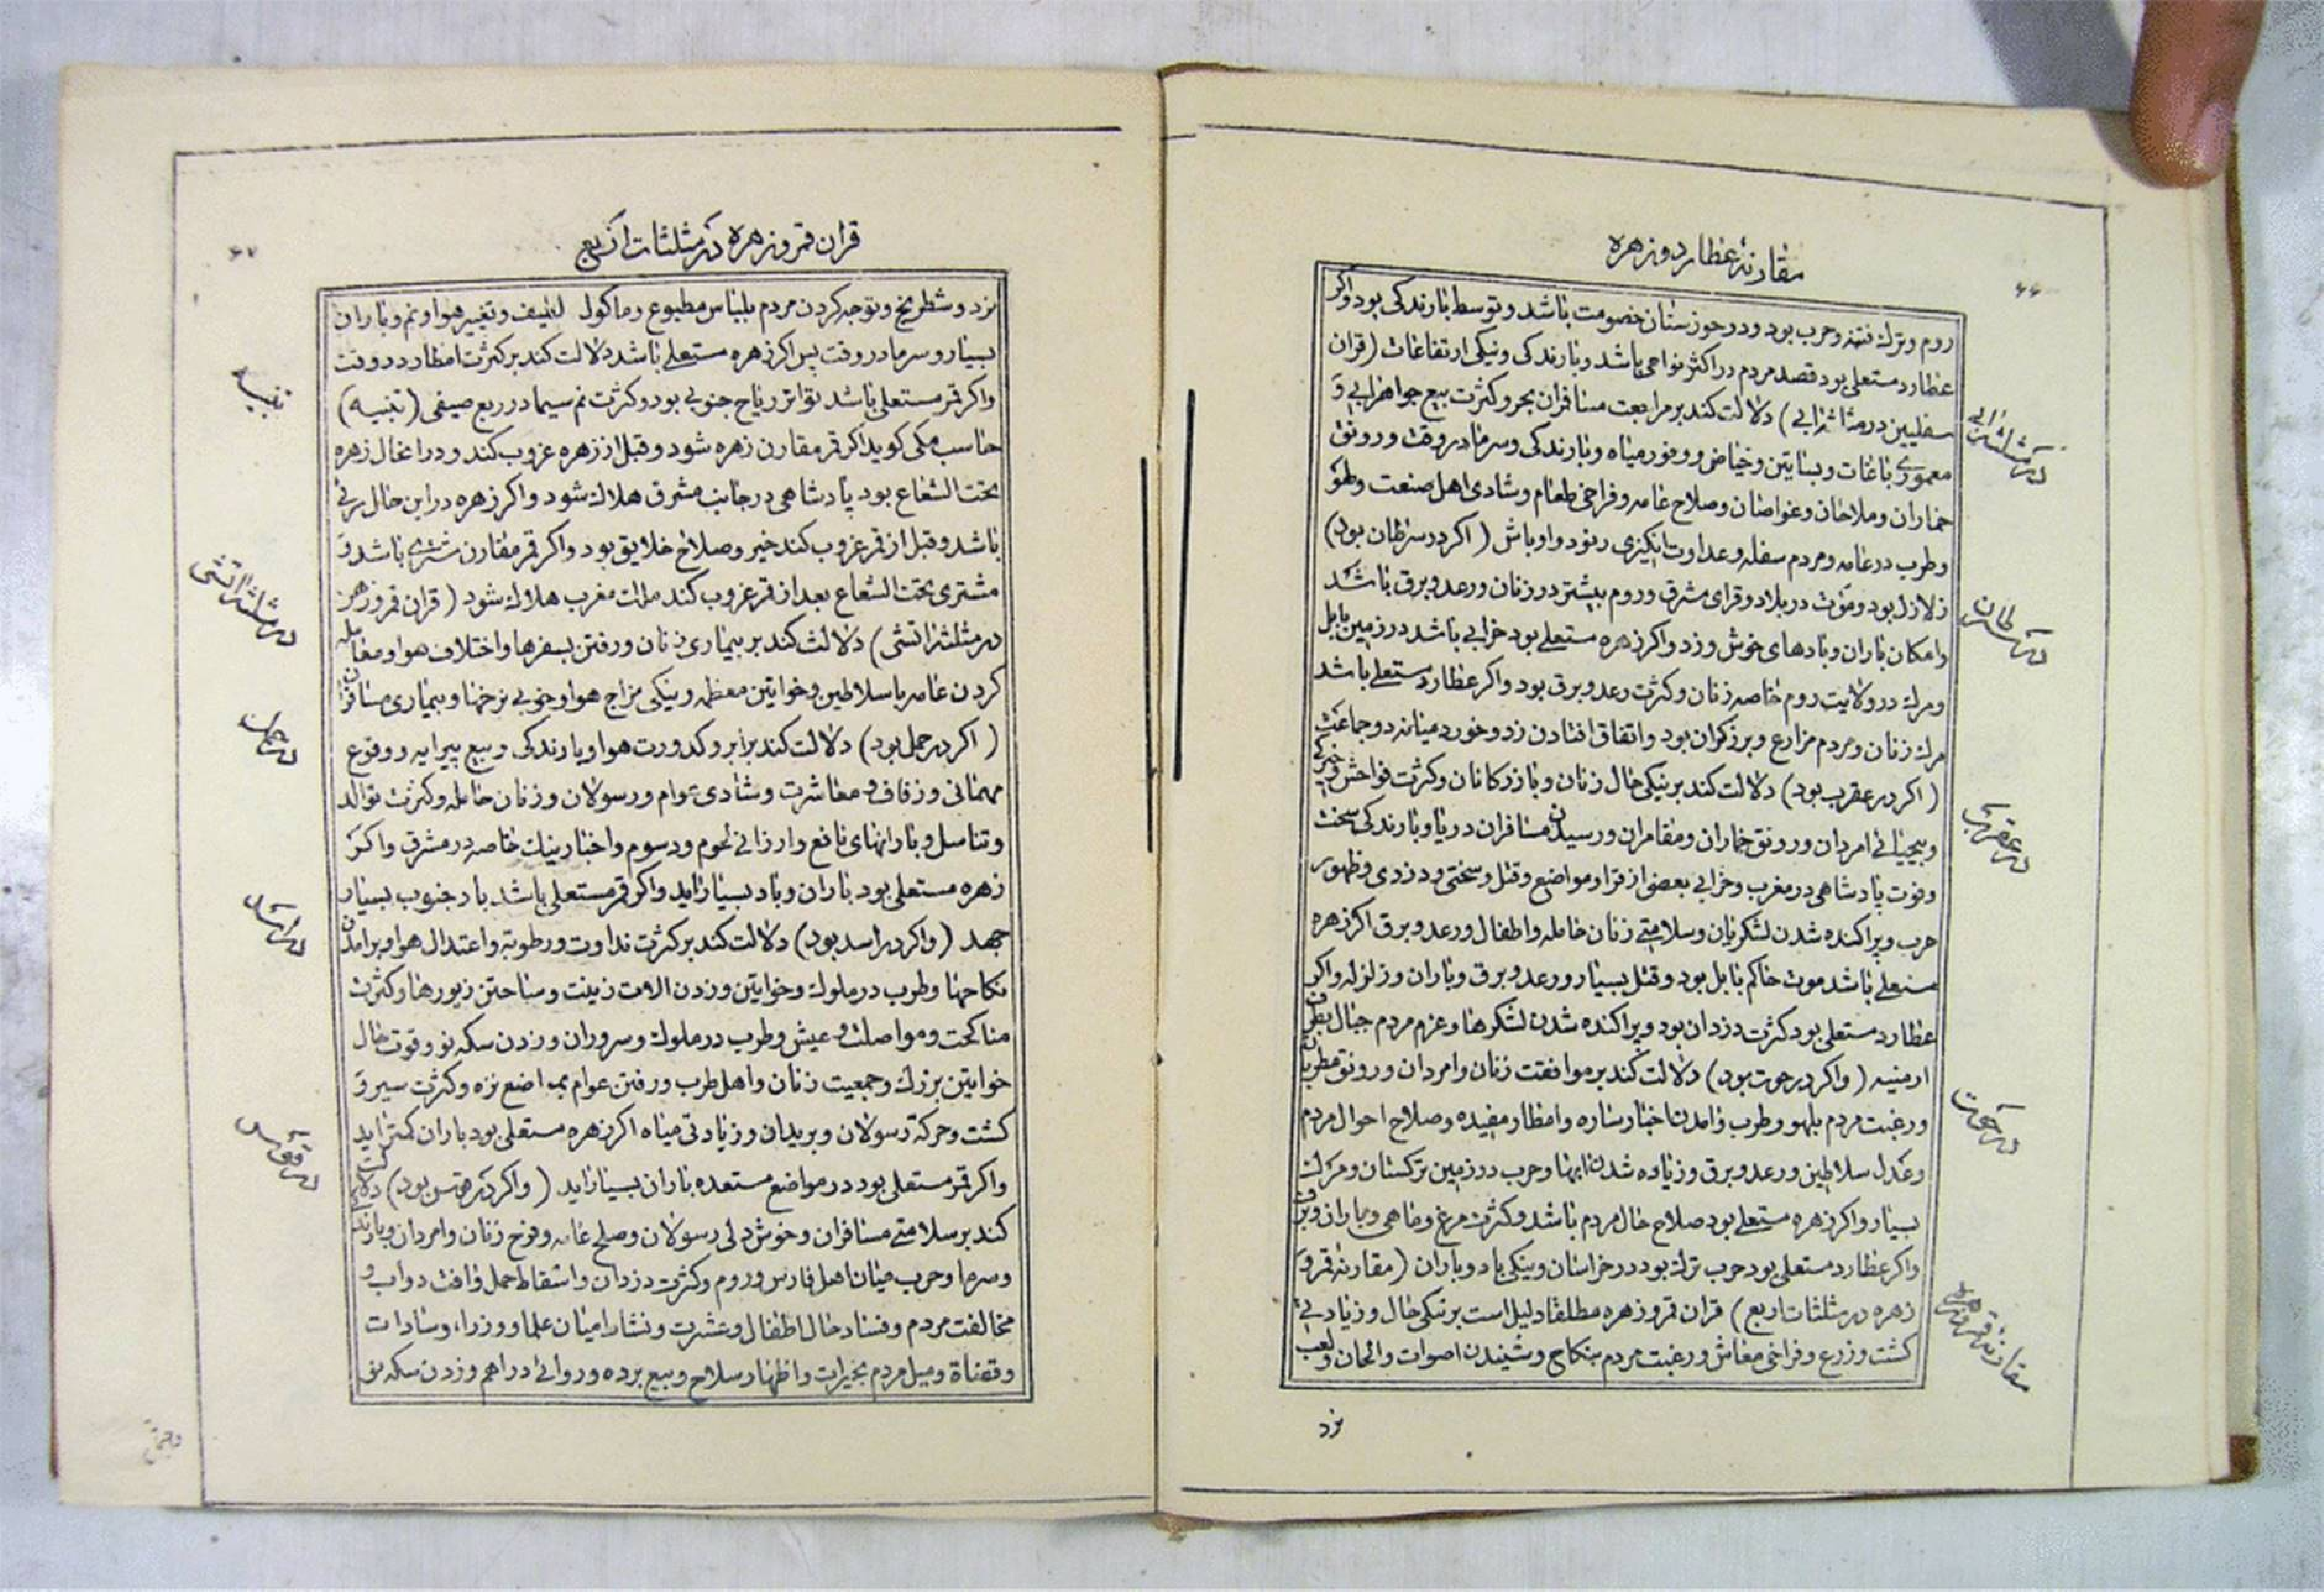 مقارنهٔ عطارد و زهره
۶۶
روم و ترک فتنه و حرب بود و در خوزستان خصومت باشد و توسط بارندکی بود و اکر
عطارد مستعلی بود قصد مردم در اکثر نواحی باشد و بارندکی و نیکی ارتفاعات (قران
سفلیین در مثلثه ابی) دلالت کند بر مراجعت مسافران بحر و کثرت بیع جواهر ابی و
معموری باغات و بساتین و حیاض و وفور میاه و بارندکی و سرما در وقت و رونق
خماران و ملاحان و غواصان و صلاح عامه و فراخی طعام و شادی اهل صنعت و لهو
و طرب در عامه و مردم سفله و عداوت انکیزی رنود و اوباش (اکر در سرطان بود)
زلازل بود و موت در بلاد و قرای مشرق و روم بیشتر در زنان و رعد و برق باشد
و امکان باران و بادهای خوش وزد و اکر زهره مستعلی بود خرابی باشد در زمین بابل
و مرک در ولایت روم خاصه زنان و کثرت رعد و برق بود و اکر عطارد مستعلی باشد
مرک زنان و مردم مزارع و برزکران بود و اتفاق افتادن زد و خورد میانه دو جماعت
(اکر در عقرب بود) دلالت کند بر نیکی حال زنان و بازرکانان و کثرت فواحش و خیرکی
و بیحیائی امردان و رونق خماران و مقامران و رسیدن مسافران دریا و بارندکی سخت
و فوت پادشاهی در مغرب و خرابی بعضی از قرا و مواضع و قتل و سختی و دزدی و ظهور
حرب و پراکنده شدن لشکریان و سلامتی زنان حامله و اطفال و رعد و برق اکر زهره
مستعلی باشد موت حاکم بابل بود و قتل بسیار و رعد و برق و باران و زلزله و اکر
عطارد مستعلی بود کثرت دزدان بود و پراکنده شدن لشکرها و عزم مردم جبال بطرف
ارمنیه (و اکر در حوت بود) دلالت کند بر موافقت زنان و امردان و رونق مطربان
و رغبت مردم بلهو و طرب و امدن اخبار ساره و امطار مفیده و صلاح احوال مردم
و عدل سلاطین و رعد و برق و زیاده شدن ابها و حرب در زمین ترکستان و مرک
بسیار و اکر زهره مستعلی بود صلاح حال مردم باشد و کثرت مرغ و ماهی و باران و برف
و اکر عطارد مستعلی بود حرب ترک بود در خراسان و نیکی باد و باران (مقارنهٔ قمر و
زهره در مثلثات اربع) قران قمر و زهره مطلقا دلیل است بر نیکی حال و زیادتی
کشت و زرع و فراخی معاش و رغبت مردم بنکاح و شنیدن اصوات و الحان و لعب
نرد
در مثلثه ابی
در سرطان
در عقرب
در حوت
مقارنه قمر و زهره
قران قمر و زهره در مثلثات اربع
۶۷
نرد و شطرنج و توجه کردن مردم بلباس مطبوع و ماکول لطیف و تغییر هوا و نم و باران
بسیار و سرما در وقت پس اکر زهره مستعلی باشد دلالت کند بر کثرت امطار در وقت
و اکر قمر مستعلی باشد تواتر ریاح جنوبی بود و کثرت نم سیما در ربع صیفی (تنبیه)
حاسب مکی کوید اکر قمر مقارن زهره شود و قبل از زهره غروب کند و در انحال زهره
تحت الشعاع بود پادشاهی در جانب مشرق هلاک شود و اکر زهره در این حال مرئی
باشد و قبل از قمر غروب کند خیر و صلاح خلایق بود و اکر قمر مقارن مشتری باشد و
مشتری تحت الشعاع بعد از قمر غروب کند ملک مغرب هلاک شود (قران قمر و زهره
در مثلثه اتشی) دلالت کند بر بیماری زنان و رفتن بسفرها و اختلاف هوا و معامله
کردن عامه با سلاطین و خواتین معظمه و نیکی مزاج هوا و خوبی نرخها و بیماری مسافران
(اکر در حمل بود) دلالت کند بر ابر و کدورت هوا و بارندکی و بیع پیرایه و وقوع
مهمانی و زفاف و معاشرت و شادی عوام و رسولان و زنان حامله و کثرت توالد
و تناسل و بارانهای نافع و ارزانی لحوم و دسوم و اخبار نیک خاصه در مشرق و اکر
زهره مستعلی بود باران و باد بسیار اید و اکر قمر مستعلی باشد باد جنوب بسیار
جهد (و اکر در اسد بود) دلالت کند بر کثرت نداوت و رطوبة و اعتدال هوا و برامدن
نکاحها و طرب در ملوک و خواتین و زدن الات زینت و ساختن زیورها و کثرت
مناکحت و مواصلت و عیش و طرب در ملوک و سروران و زدن سکه نو و قوت حال
خواتین بزرک و جمعیت زنان و اهل طرب و رفتن عوام بمواضع نزه و کثرت سیر و
کشت و حرکة رسولان و بریدان و زیادتی میاه اکر زهره مستعلی بود باران کمتر اید
و اکر قمر مستعلی بود در مواضع مستعده باران بسیار اید (و اکر در قوس بود) دلالت
کند بر سلامتی مسافران و خوش دلی رسولان و صلح عامه و فرح زنان و امردان و بارندکی
و سرما و حرب میان اهل فارس و روم و کثرت دزدان و اسقاط حمل و افت دواب و
مخالفت مردم و فساد حال اطفال و عشرت و نشاط میان علما و وزراء و سادات
و قضاة و میل مردم بخیرات و اظهار سلاح و بیع برده و روائی دراهم و زدن سکه نو
تنبیه
در مثلثه اتشی
در حمل
در اسد
در قوس